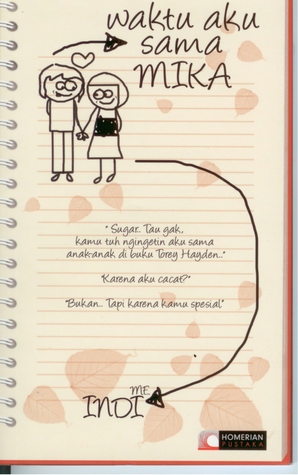 waktu aku
sama
MIKA
" Sugar.. Tau gak,
kamu tuh ngingetin aku sama
anak-anak di buku Torey Hayden.."
"Karena aku cacat?"
"Bukan.. Tapi karena kamu spesial"
ME
INDI
HOMERIAN
PUSTAKA